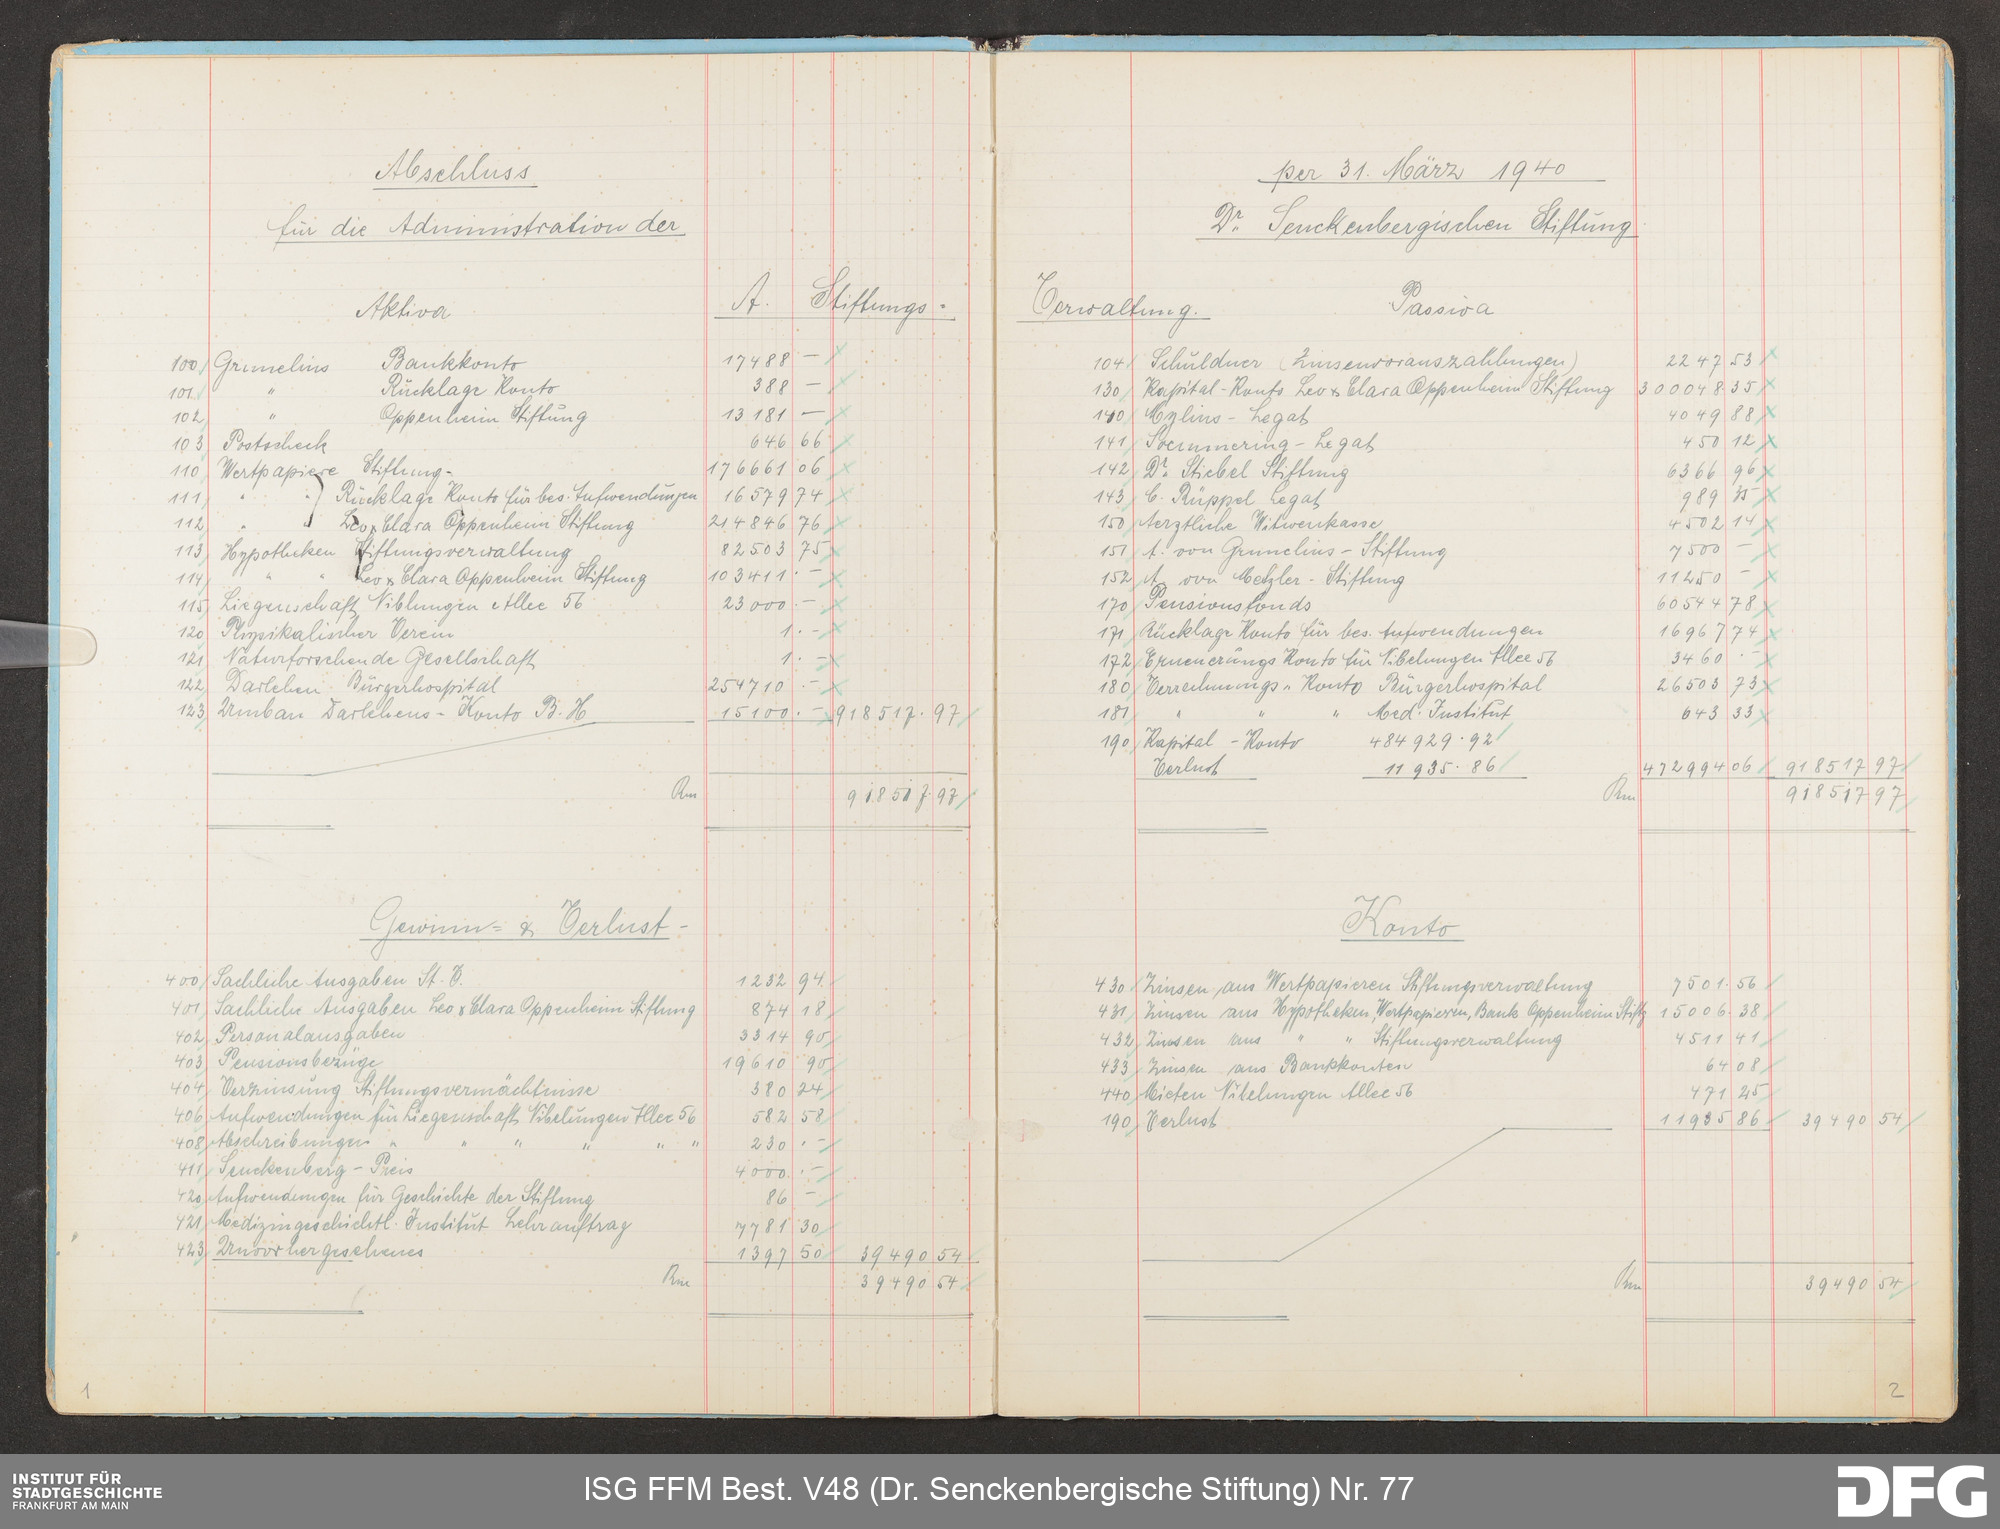 Abschluss
für die Administration der
Aktiva A. Stiftungs-
100 Grunelius Bankkonto 17488 —
101 " Rücklage Konto 388 —
102 " Oppenheim Stiftung 13181 —
103 Postscheck 646 66
110 Wertpapiere Stiftung- 176661 06
111 " " Rücklage Konto für bes. Aufwendungen 16579 74
112 " " Leo & Clara Oppenheim Stiftung 214846 76
113 Hypotheken Stiftungsverwaltung 82503 75
114 " " Leo & Clara Oppenheim Stiftung 103411 . —
115 Liegenschaft Niblungen Allee 56 23000 . —
120 Physikalischer Verein 1 . —
121 Naturforschende Gesellschaft 1 . —
122 Darlehen Bürgerhospital 254710 . —
123 Umbau Darlehens-Konto B. H 15100 . — 918517 . 97
Rm 918517 . 97
Gewinn- & Verlust-
400 Sachliche Ausgaben St. V. 1232 94
401 Sachliche Ausgaben Leo & Clara Oppenheim Stiftung 874 18
402 Personalausgaben 3314 90
403 Pensionsbezüge 19610 90
404 Verzinsung Stiftungsvermächtnisse 380 24
406 Aufwendungen für Liegenschaft Nibelungen Allee 56 582 58
408 Abschreibungen " " " " " " 230 . —
411 Senckenberg-Preis 4000 . —
420 Aufwendungen für Geschichte der Stiftung 86 —
421 Medizingeschichtl. Institut Lehrauftrag 7781 30
423 Unvorhergesehenes 1397 50 39490 54
Rm 39490 54
1
per 31. März 1940
Dr. Senckenbergischen Stiftung
Verwaltung. Passiva
104 Schuldner (Zinsenvorauszahlungen) 2247 53
130 Kapital-Konto Leo & Clara Oppenheim Stiftung 300048 35
140 Mylius-Legat 4049 88
141 Soemmering-Legat 450 12
142 Dr. Stiebel Stiftung 6366 96
143 C. Rüppel Legat 989
150 Aerztliche Witwenkasse 4502 14
151 A. von Grunelius-Stiftung 7500 —
152 A. von Metzler-Stiftung 11250 —
170 Pensionsfonds 60544 78
171 Rücklage Konto für bes. Aufwendungen 16967 74
172 Erneuerungs Konto für Nibelungen Allee 56 3460 . —
180 Verrechnungs-Konto Bürgerhospital 26503 73
181 " " " Med. Institut 643 33
190 Kapital-Konto 484929 . 92
Verlust 11935 . 86 472994 06 918517 97
Rm 918517 97
Konto
430 Zinsen aus Wertpapieren Stiftungsverwaltung 7501 . 56
431 Zinsen aus Hypotheken, Wertpapieren, Bank Oppenheim Stiftg 15006 . 38
432 Zinsen aus " " Stiftungsverwaltung 4511 41
433 Zinsen aus Bankkonten 64 08
440 Mieten Nibelungen Allee 56 471 25
190 Verlust 11935 86 39490 54
Rm 39490 54
2
INSTITUT FÜR
STADTGESCHICHTE
FRANKFURT AM MAIN
ISG FFM Best. V48 (Dr. Senckenbergische Stiftung) Nr. 77
DFG